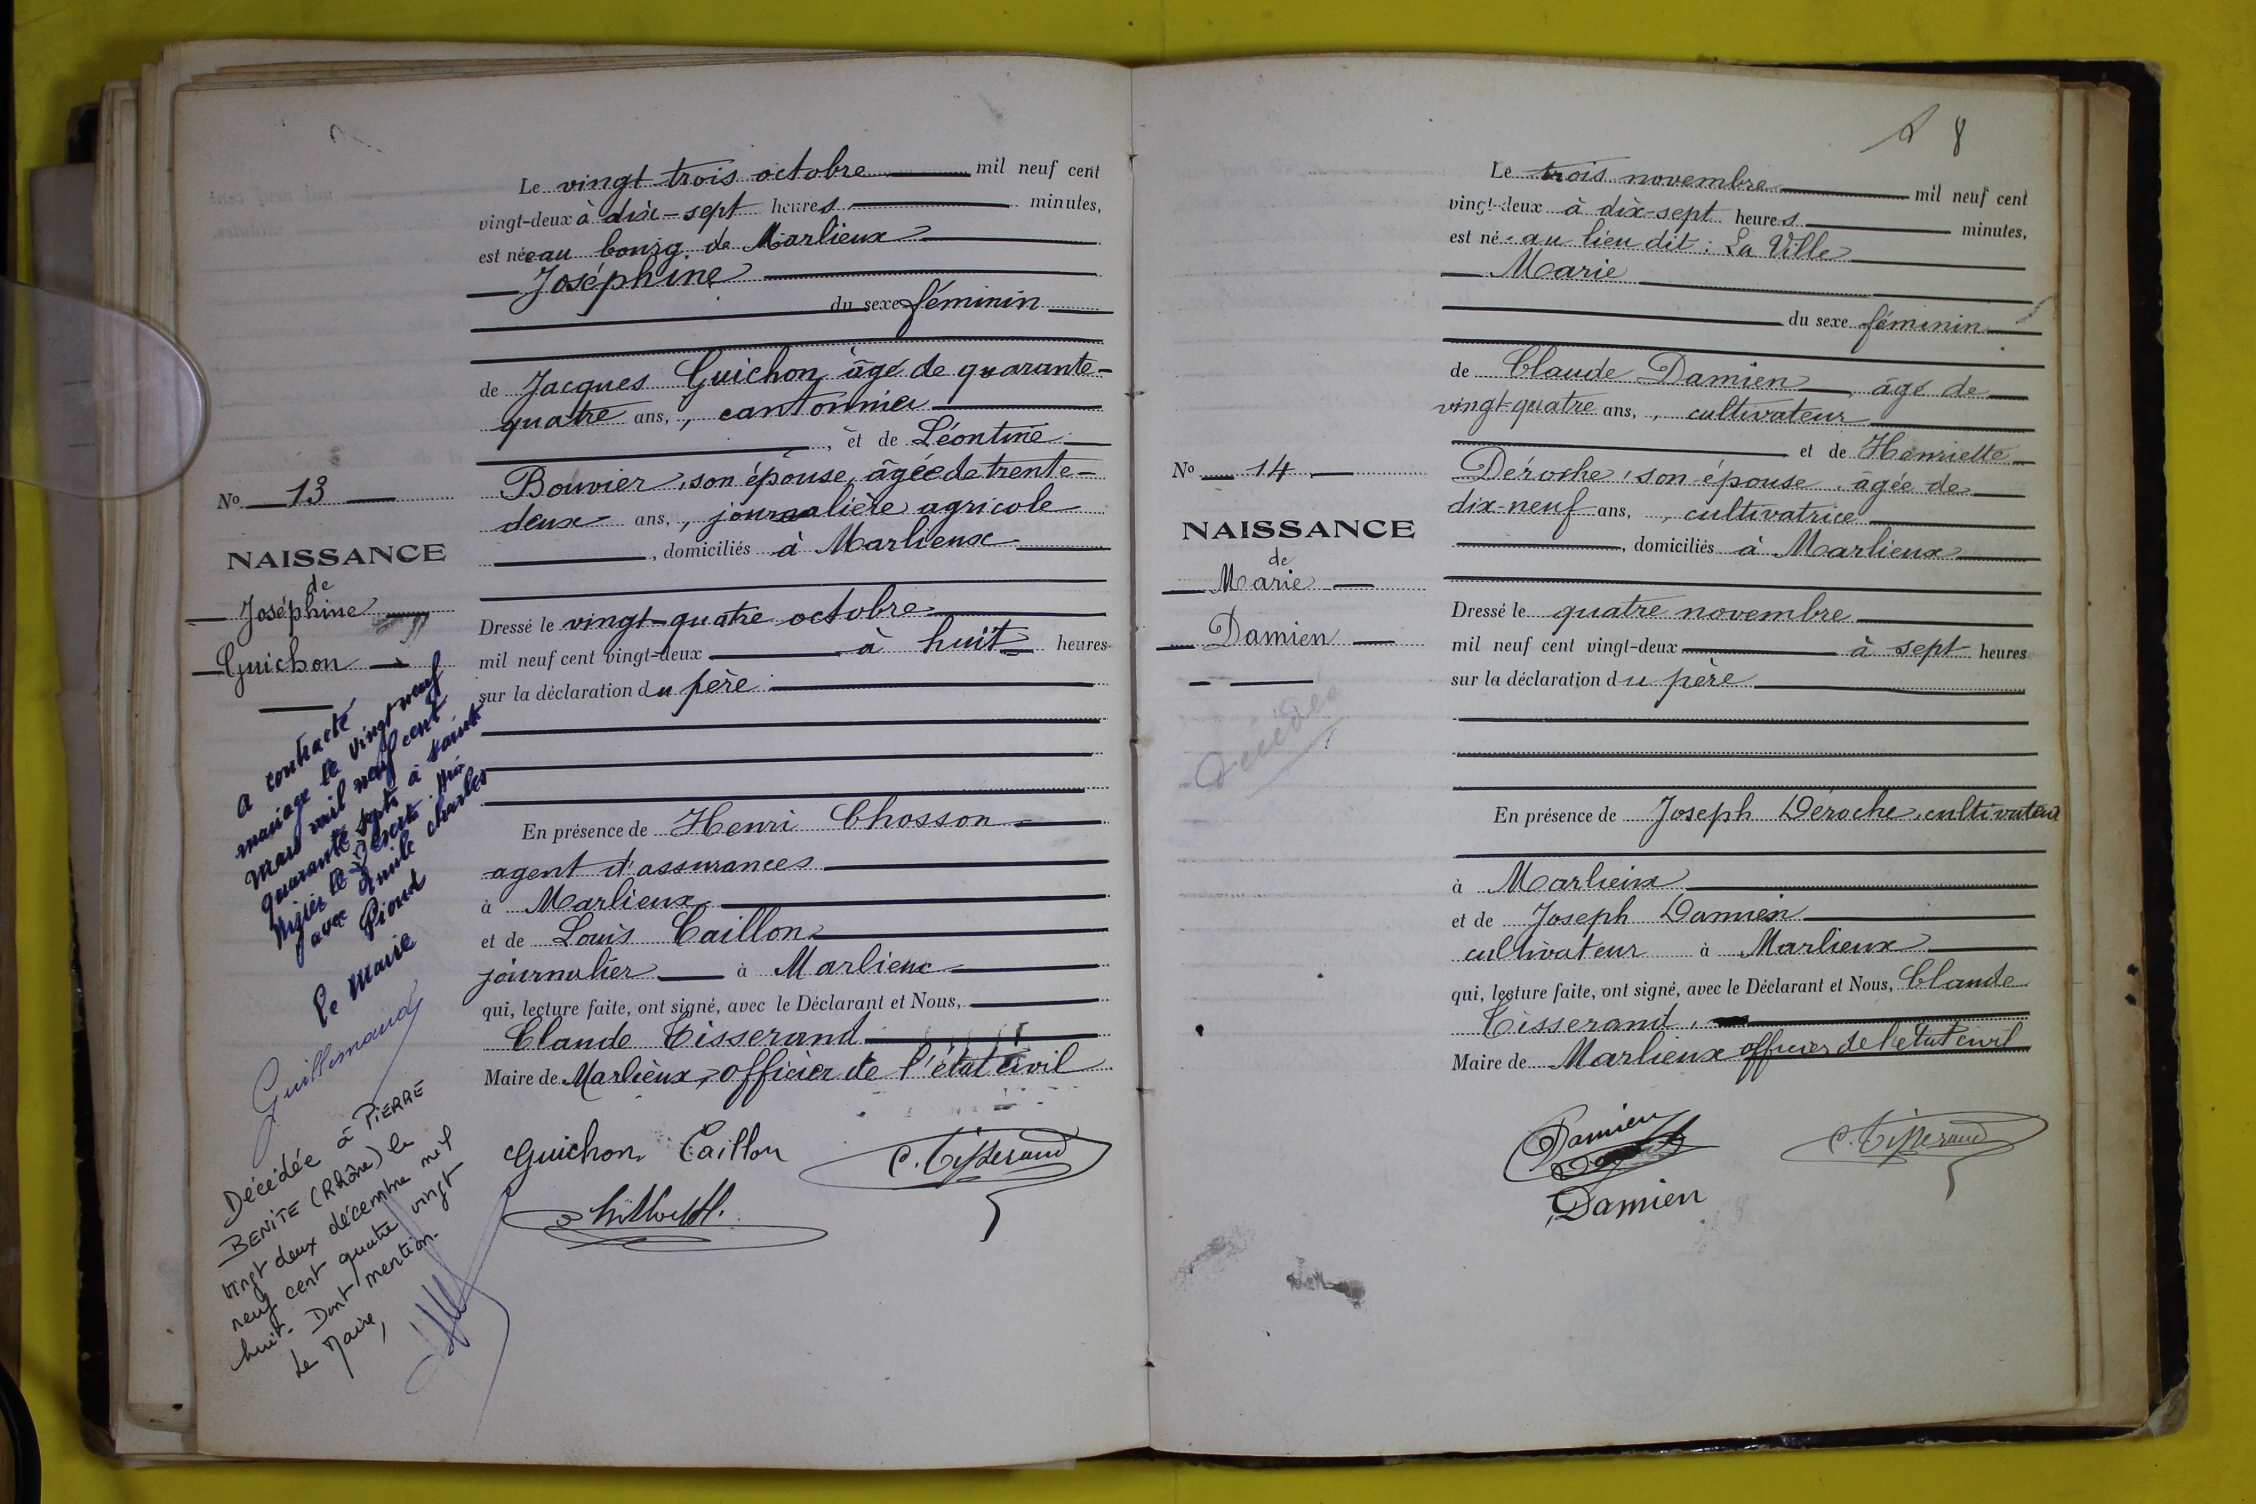 Le vingt trois octobre mil neuf cent
vingt-deux à dix-sept heures minutes,
est née au bourg de Marlieux
Joséphine
du sexe féminin
de Jacques Guichon, âgé de quarante-
quatre ans, , cantonnier
, et de Léontine
Bouvier, son épouse, âgée de trente-
deux ans, , journalière agricole
, domiciliés à Marlieux
Dressé le vingt-quatre octobre
mil neuf cent vingt-deux à huit heures
sur la déclaration du père
En présence de Henri Chosson
agent d'assurances
à Marlieux
et de Louis Caillon
journalier à Marlieux
qui, lecture faite, ont signé, avec le Déclarant et Nous,
Claude Tisserand
Maire de Marlieux, officier de l'état civil
Guichon Caillon C. Tisserand
No 13
NAISSANCE
de
Joséphine
Guichon
a contracté
mariage le vingt neuf
mars mil neuf cent
quarante sept à saint
Nizier le Désert
avec Emile Charles
Pioud
Le Maire
Guillemaud
Décédée à PIERRE
BENITE (Rhône) le
vingt deux décembre mil
neuf cent quatre vingt
huit. Dont mention.
Le Maire,
8
Le trois novembre mil neuf cent
vingt-deux à dix-sept heures minutes,
est née au lieu dit : La Ville
Marie
du sexe féminin
de Claude Damien, âgé de
vingt-quatre ans, , cultivateur
et de Henriette
Déroche, son épouse, âgée de
dix-neuf ans, , cultivatrice
, domiciliés à Marlieux
Dressé le quatre novembre
mil neuf cent vingt-deux à sept heures
sur la déclaration du père
En présence de Joseph Déroche, cultivateur
à Marlieux
et de Joseph Damien
cultivateur à Marlieux
qui, lecture faite, ont signé, avec le Déclarant et Nous, Claude
Tisserand,
Maire de Marlieux officier de l'état civil
Damien C. Tisserand
Damien
No 14
NAISSANCE
de
Marie
Damien